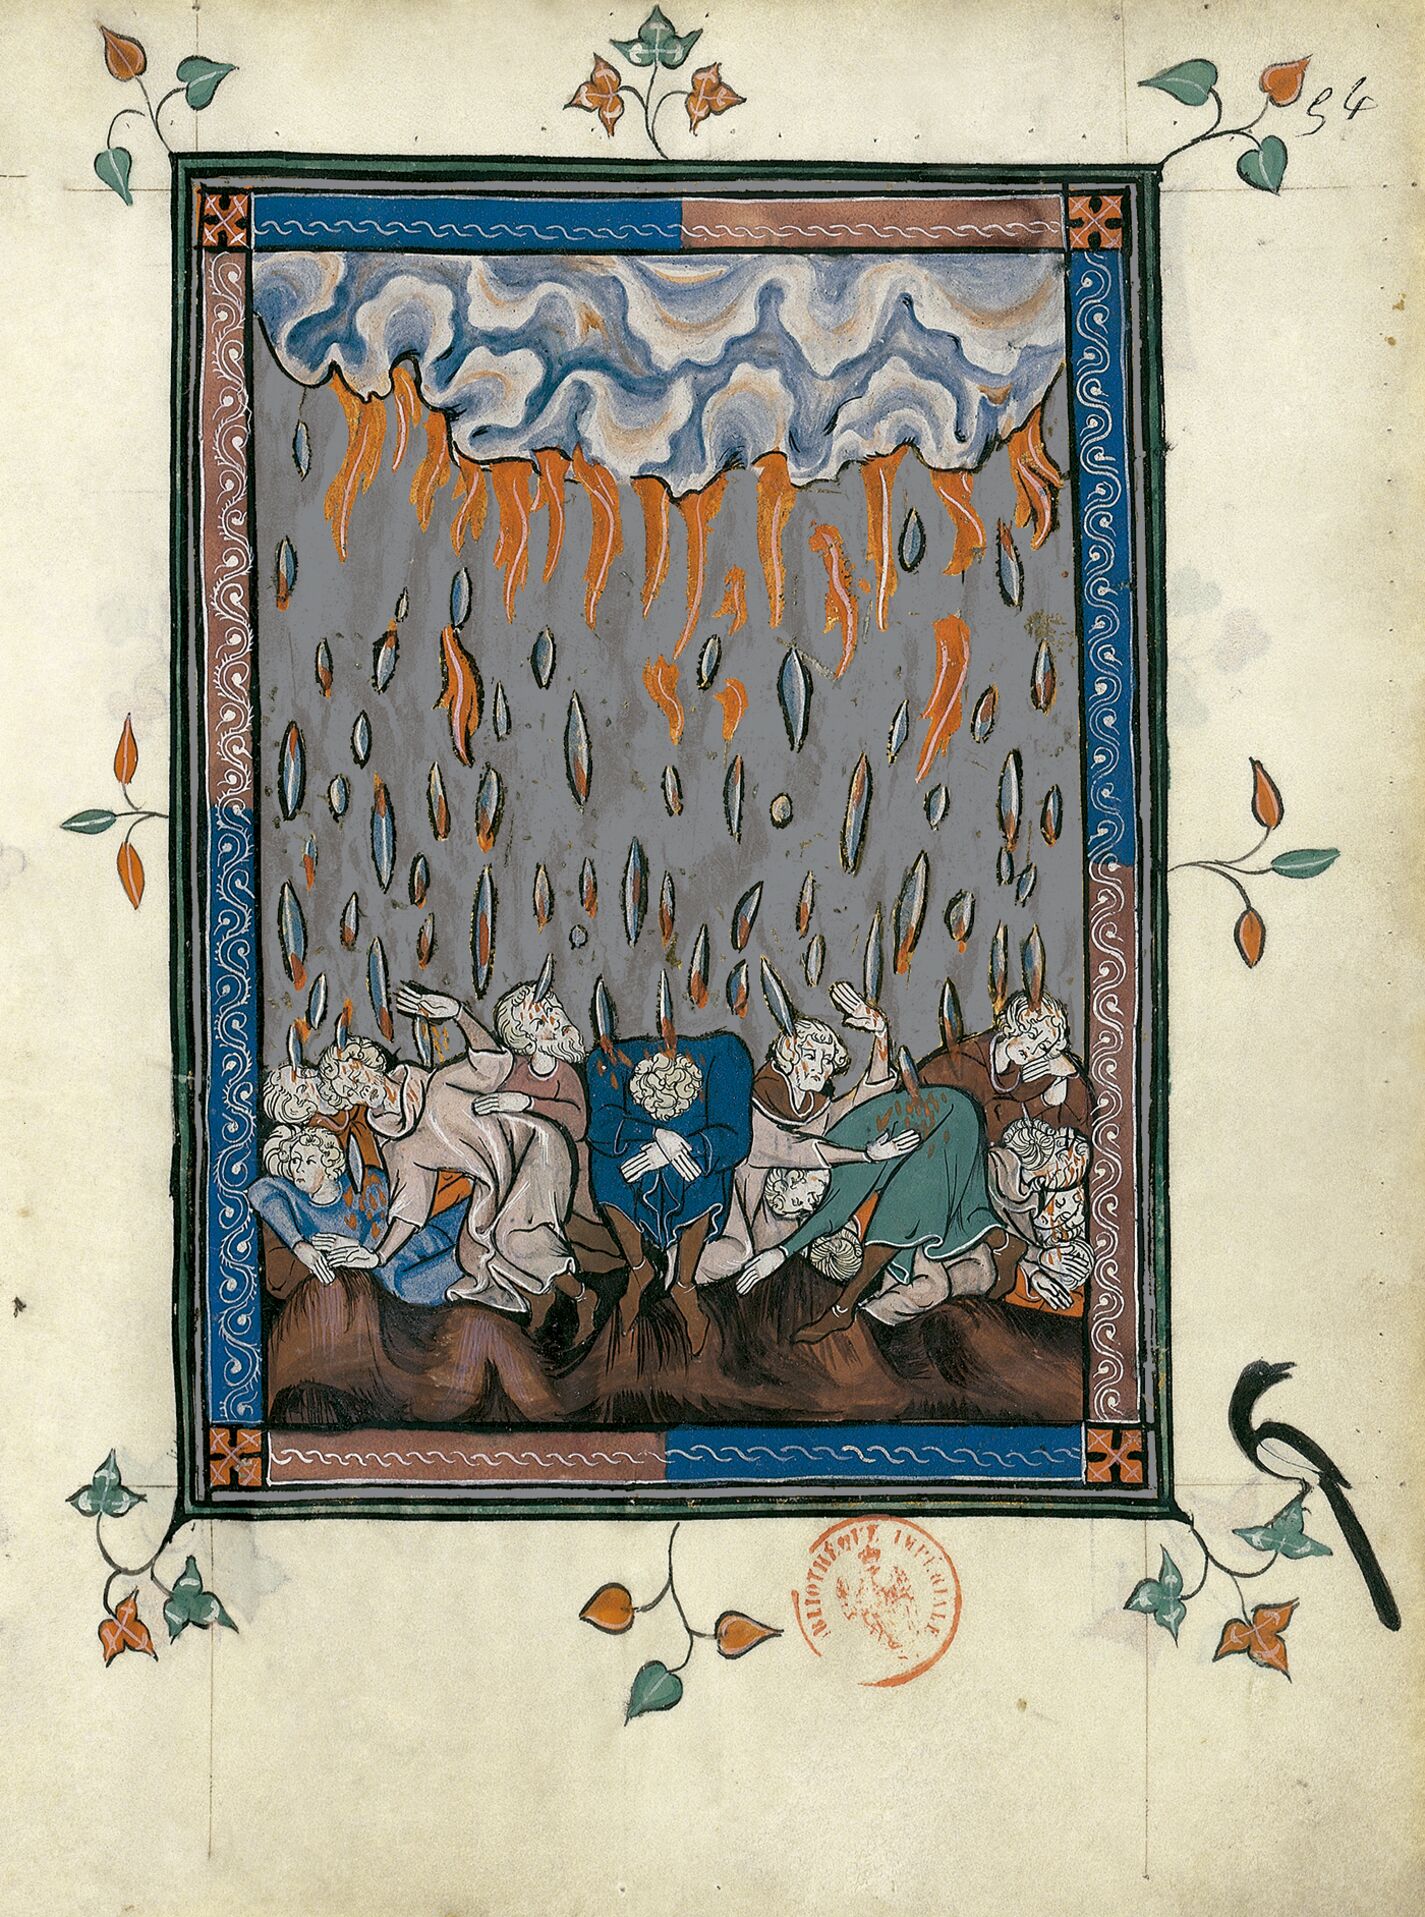 54
BIBLIOTHÈQUE IMPÉRIALE